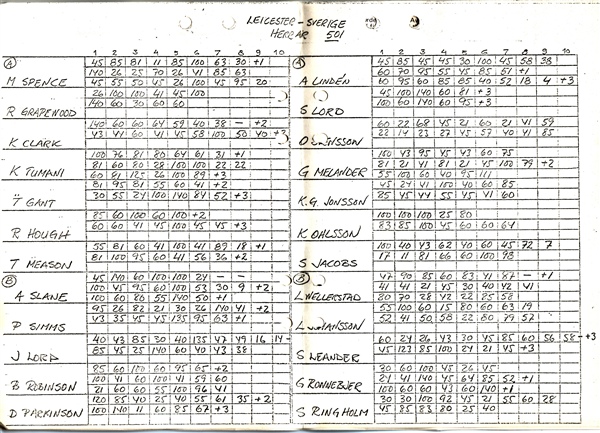 LEICESTER - SVERIGE
HERRAR 501
1 2 3 4 5 6 7 8 9 10 1 2 3 4 5 6 7 8 9 10
A 45 85 81 11 85 100 63 30 +1 A 45 85 45 45 30 100 45 58 38
140 26 25 70 26 41 85 63 60 70 95 55 45 85 61 +1
M SPENCE 45 55 50 45 26 100 45 95 20 A LINDÉN 60 95 60 85 85 40 52 18 4 +3
26 100 100 41 45 100 45 100 140 60 81 +3
R GRAPEWOOD 140 60 30 60 60 S LORD 100 60 140 60 95 +3
140 60 60 64 59 40 38 - +2 60 22 68 45 21 60 21 41 59
K CLARK 43 41 60 41 45 58 100 50 40 +3 22 14 23 27 45 57 40 41 85
100 76 81 80 64 61 31 +1 100 43 95 45 43 60 75
K TUMANI 81 60 80 28 100 100 22 22 G MELANDER 81 21 41 81 21 45 100 79 +2
60 81 125 26 100 89 +3 55 100 60 40 95 111
T GANT 81 95 81 55 60 41 +2 K.G. JONSSON 45 24 41 100 40 60 85
30 55 24 100 140 84 52 +3 85 45 44 55 45 41 60
85 60 100 60 100 +2 100 100 100 25 80
R HOUGH 60 60 41 45 100 45 45 +3 K OHLSSON 83 85 100 45 60 60 64
55 81 60 41 100 41 89 18 +1 100 40 43 62 40 60 45 72 7
T MEASON 81 100 95 60 41 56 36 +2 S JACOBS 17 11 81 66 60 100 93
B 45 140 60 100 100 24 - - B 47 90 85 60 83 41 87 - +1
A SLANE 100 45 95 60 100 53 30 9 +2 41 41 21 45 30 40 42 41
100 60 80 55 140 50 +1 80 70 28 42 22 85 58
P SIMMS 95 26 82 21 30 26 140 41 +2 55 100 60 15 80 60 63 19
43 35 45 45 135 95 63 +1 52 41 50 58 22 80 79 52
J LORD 40 43 85 30 40 135 47 49 16 14 S LEANDER 60 24 26 43 30 45 85 60 56 58 +3
85 45 25 140 60 40 43 38 45 123 85 100 24 21 45 +3
85 60 100 60 95 65 +2 30 60 100 45 26 45
B ROBINSON 100 41 60 100 41 59 60 G RONNEBJER 24 41 140 45 64 85 52 +1
21 60 60 55 100 96 41 100 60 60 43 60 140 +1
D PARKINSON 120 85 40 25 40 55 61 35 +2 S RINGHOLM 30 30 100 92 45 21 55 60 28
100 140 11 60 85 67 +3 45 85 83 80 25 40